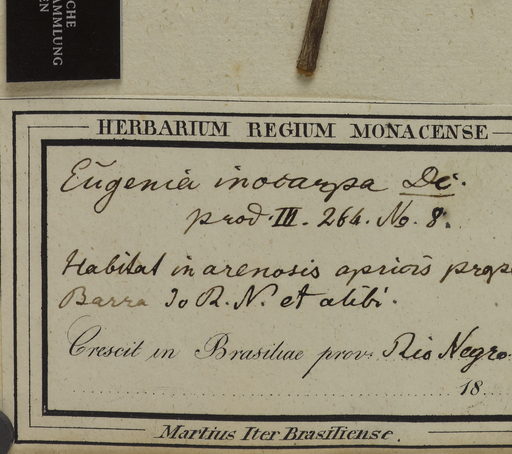 SCHE
AMMLUNG
EN
HERBARIUM REGIUM MONACENSE
Eugenia inocarpa Dc.
prod. III. 264. No. 8.
Habitat in arenosis apricis prope
Barra do R. N. et alibi.
Crescit in Brasiliae prov: Rio Negro.
18
Martius Iter Brasiliense.